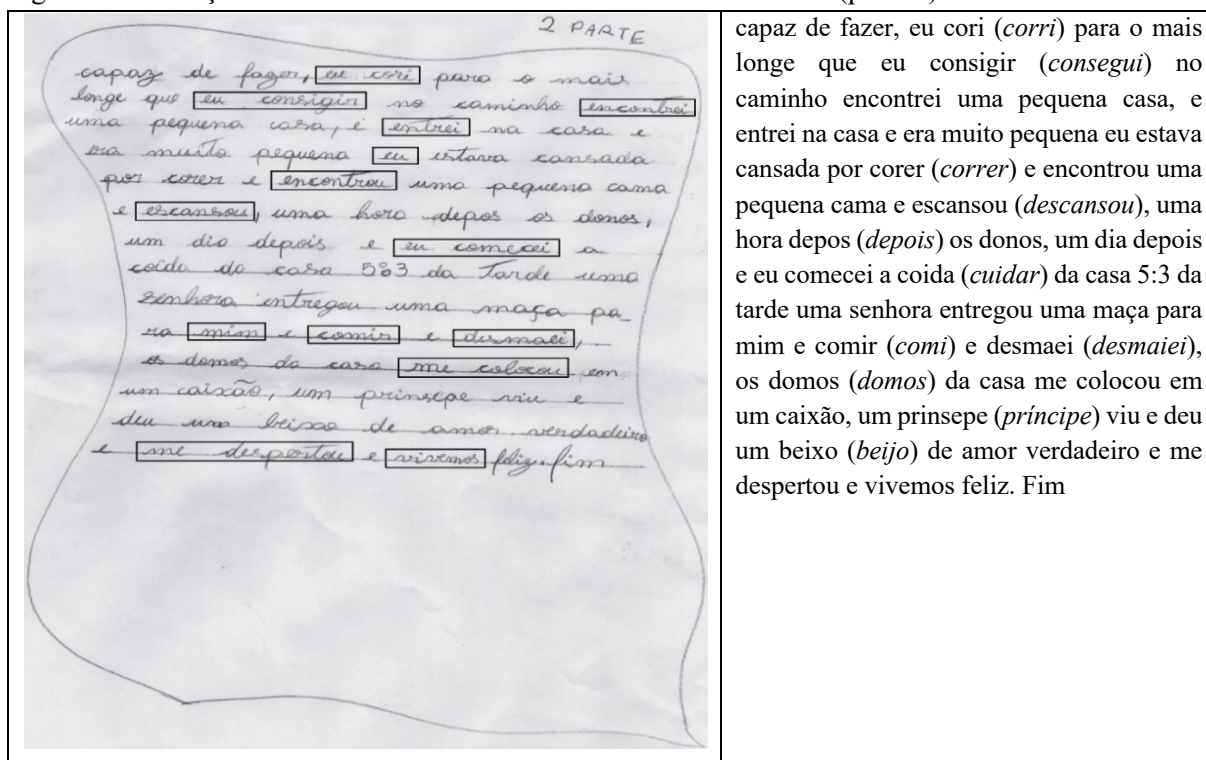 2 PARTE
capaz de fazer, eu cori para o mais
longe que eu consigir no caminho encontrei
uma pequena casa, e entrei na casa e
era muito pequena eu estava cansada
por corer e encontrou uma pequena cama
e escansou, uma hora depos os donos,
um dia depois e eu comecei a
coida da casa 5:3 da Tarde uma
senhora entregou uma maça pa_
ra mim e comir e desmaei,
os domos da casa me colocou em
um caixão, um prinsepe viu e
deu um beixo de amor verdadeiro
e me despertou e vivemos feliz. fim
capaz de fazer, eu cori (corri) para o mais
longe que eu consigir (consegui) no
caminho encontrei uma pequena casa, e
entrei na casa e era muito pequena eu estava
cansada por corer (correr) e encontrou uma
pequena cama e escansou (descansou), uma
hora depos (depois) os donos, um dia depois
e eu comecei a coida (cuidar) da casa 5:3 da
tarde uma senhora entregou uma maça para
mim e comir (comi) e desmaei (desmaiei),
os domos (domos) da casa me colocou em
um caixão, um prinsepe (príncipe) viu e deu
um beixo (beijo) de amor verdadeiro e me
despertou e vivemos feliz. Fim